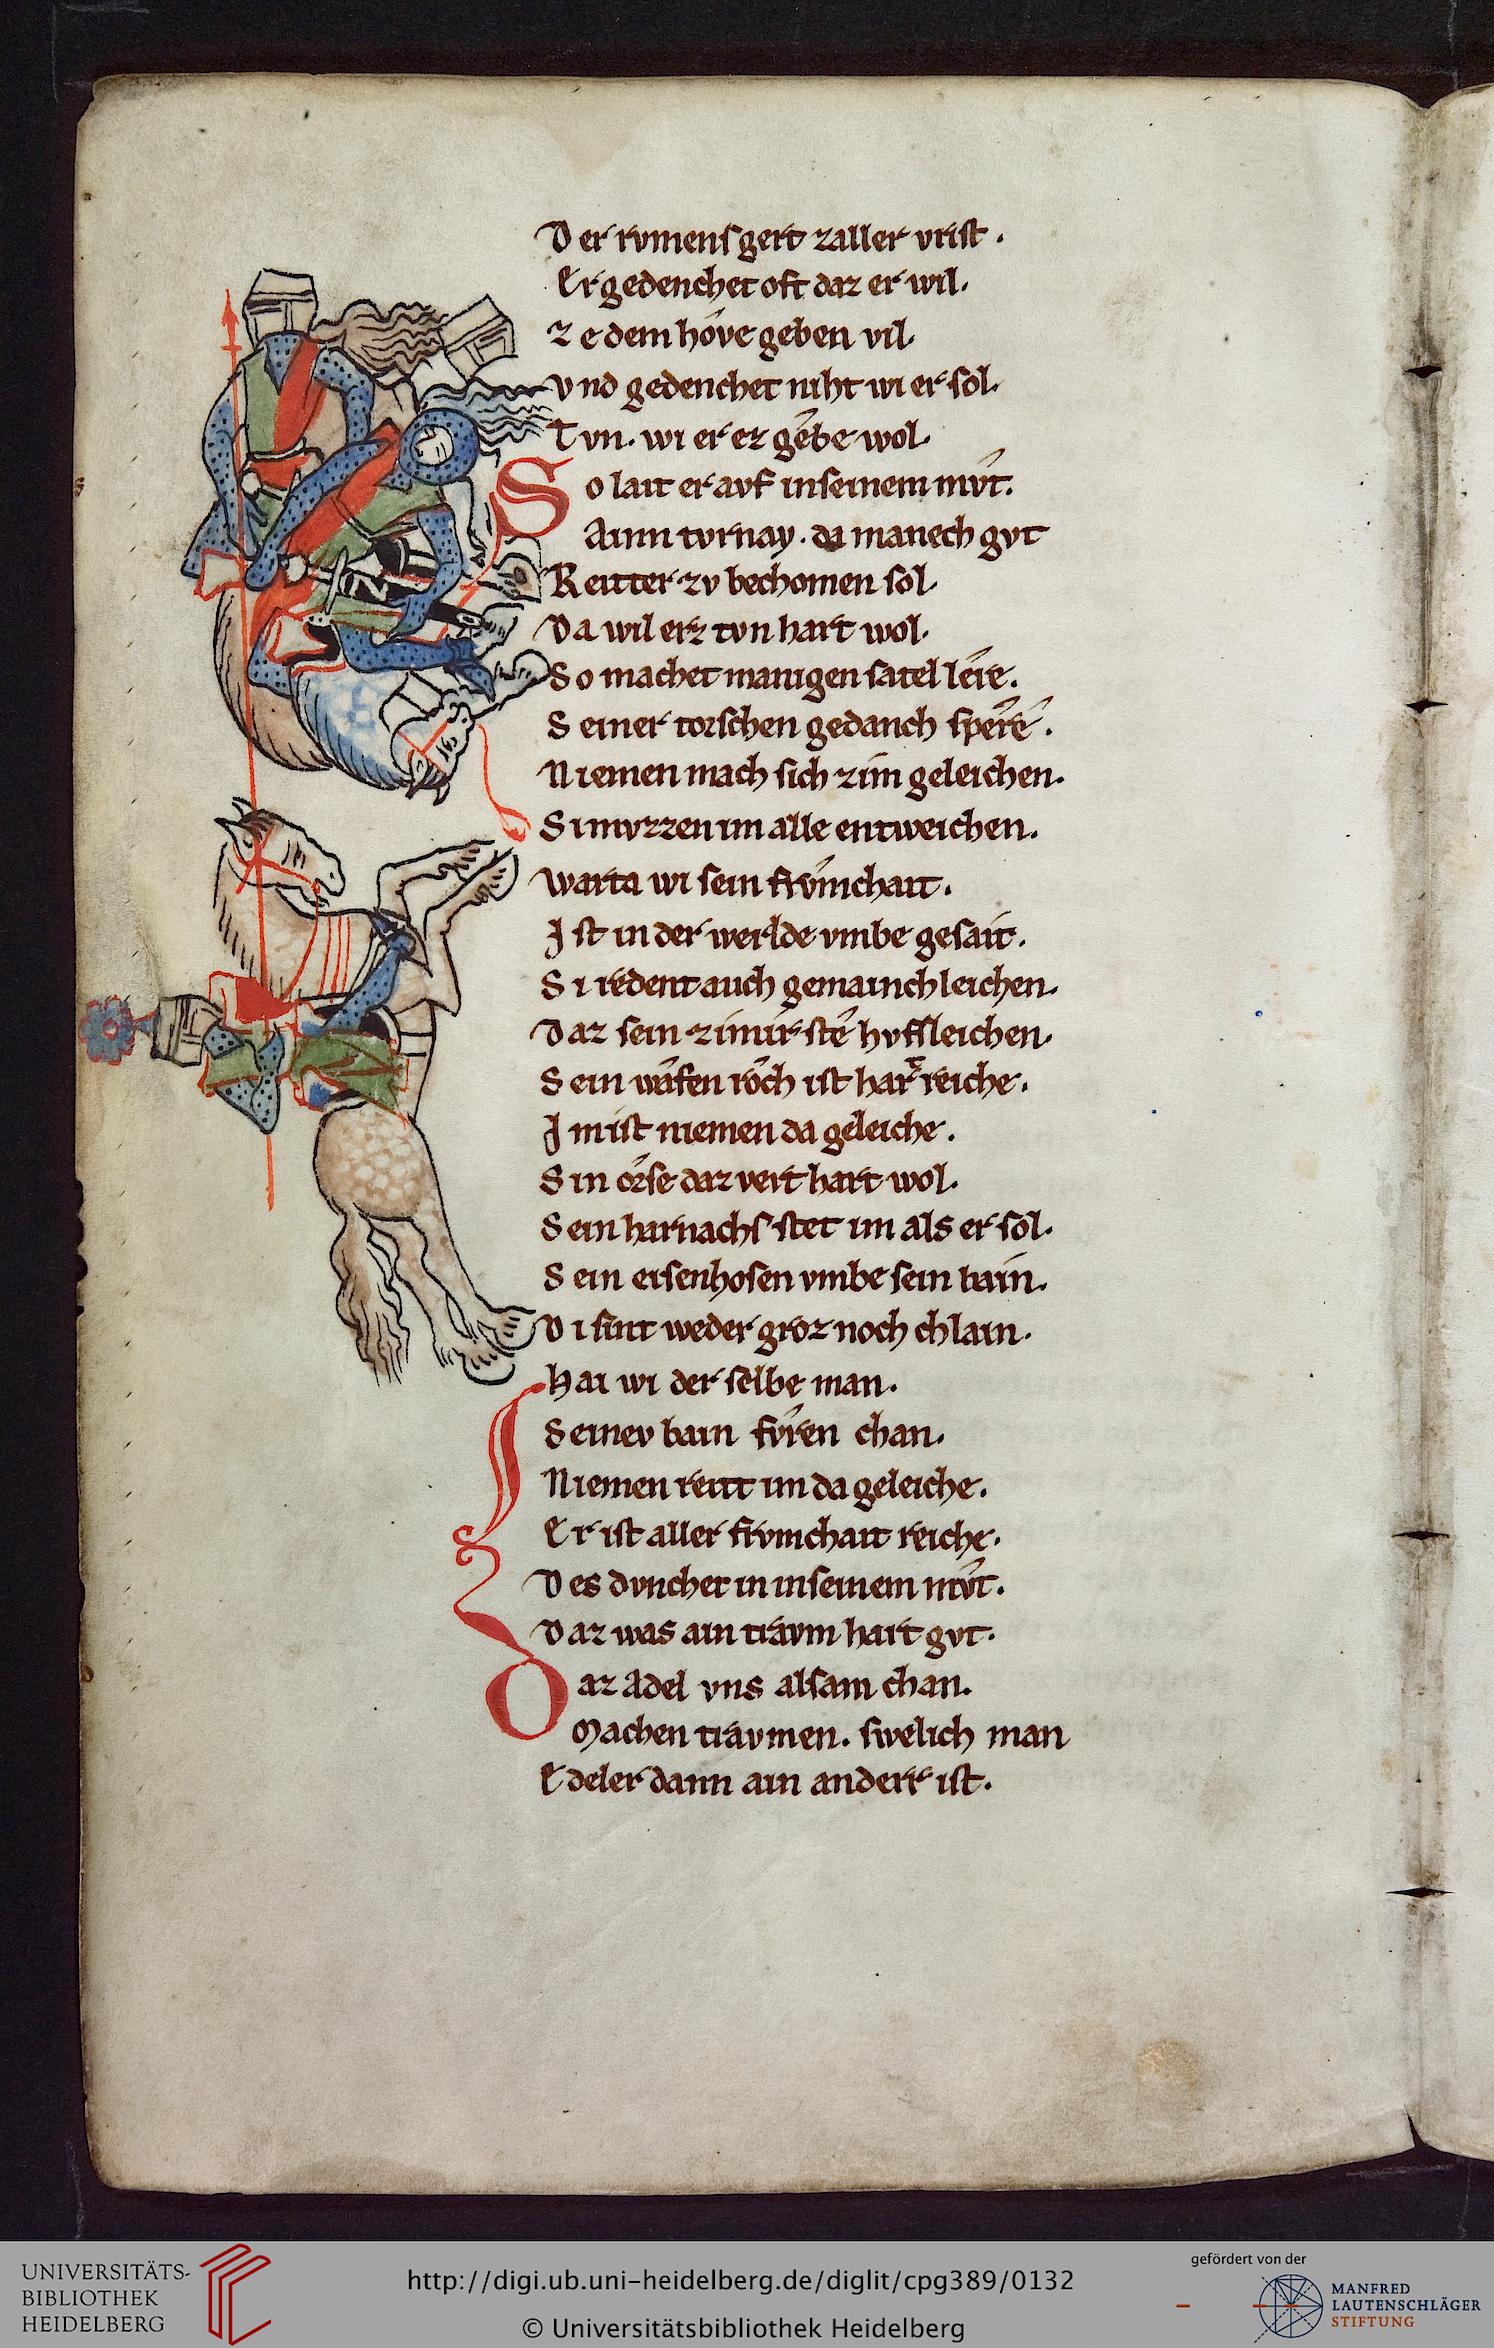 Der rvmens gert zaller vrist.
Er gedenchet oft daz er wil.
ze dem hove geben vil.
vnd gedenchet niht wi er sol.
Tvn. wi er ez gebe wol.
So lait er avf in seinem mvt.
Ainn tvrnay. da manech gvt
Reitter zv bechomen sol.
Da wil erz tvn hart wol.
So machet manigen satel lere.
Seiner torschen gedanch spere.
Niemen mach sich zim geleichen.
Si mvzzen im alle entweichen.
warta wi sein frvmchait.
Ist in der werlde vmbe gesait.
Si redent auch gemainchleichen.
Daz sein zimir ste hvfsleichen.
Sein wafen roch ist harte reiche.
Im ist niemen da geleiche.
Sin orse daz vert hart wol.
Sein harnachs stet im als er sol.
Sein eisenhosen vmbe sein bain.
Di sint weder groz noch chlain.
Hai wi der selbe man.
Seinev bain fvren chan.
Niemen reitt im da geleiche.
Er ist aller frvmchait reiche.
Des dvnchet in in seinem mvt.
Daz was ain travm hart gvt.
Daz adel vns alsam chan.
Machen travmen. swelich man
Edeler dann ain anderr ist.
UNIVERSITÄTS-
BIBLIOTHEK
HEIDELBERG
http://digi.ub.uni-heidelberg.de/diglit/cpg389/0132
© Universitätsbibliothek Heidelberg
gefördert von der
MANFRED
LAUTENSCHLÄGER
STIFTUNG